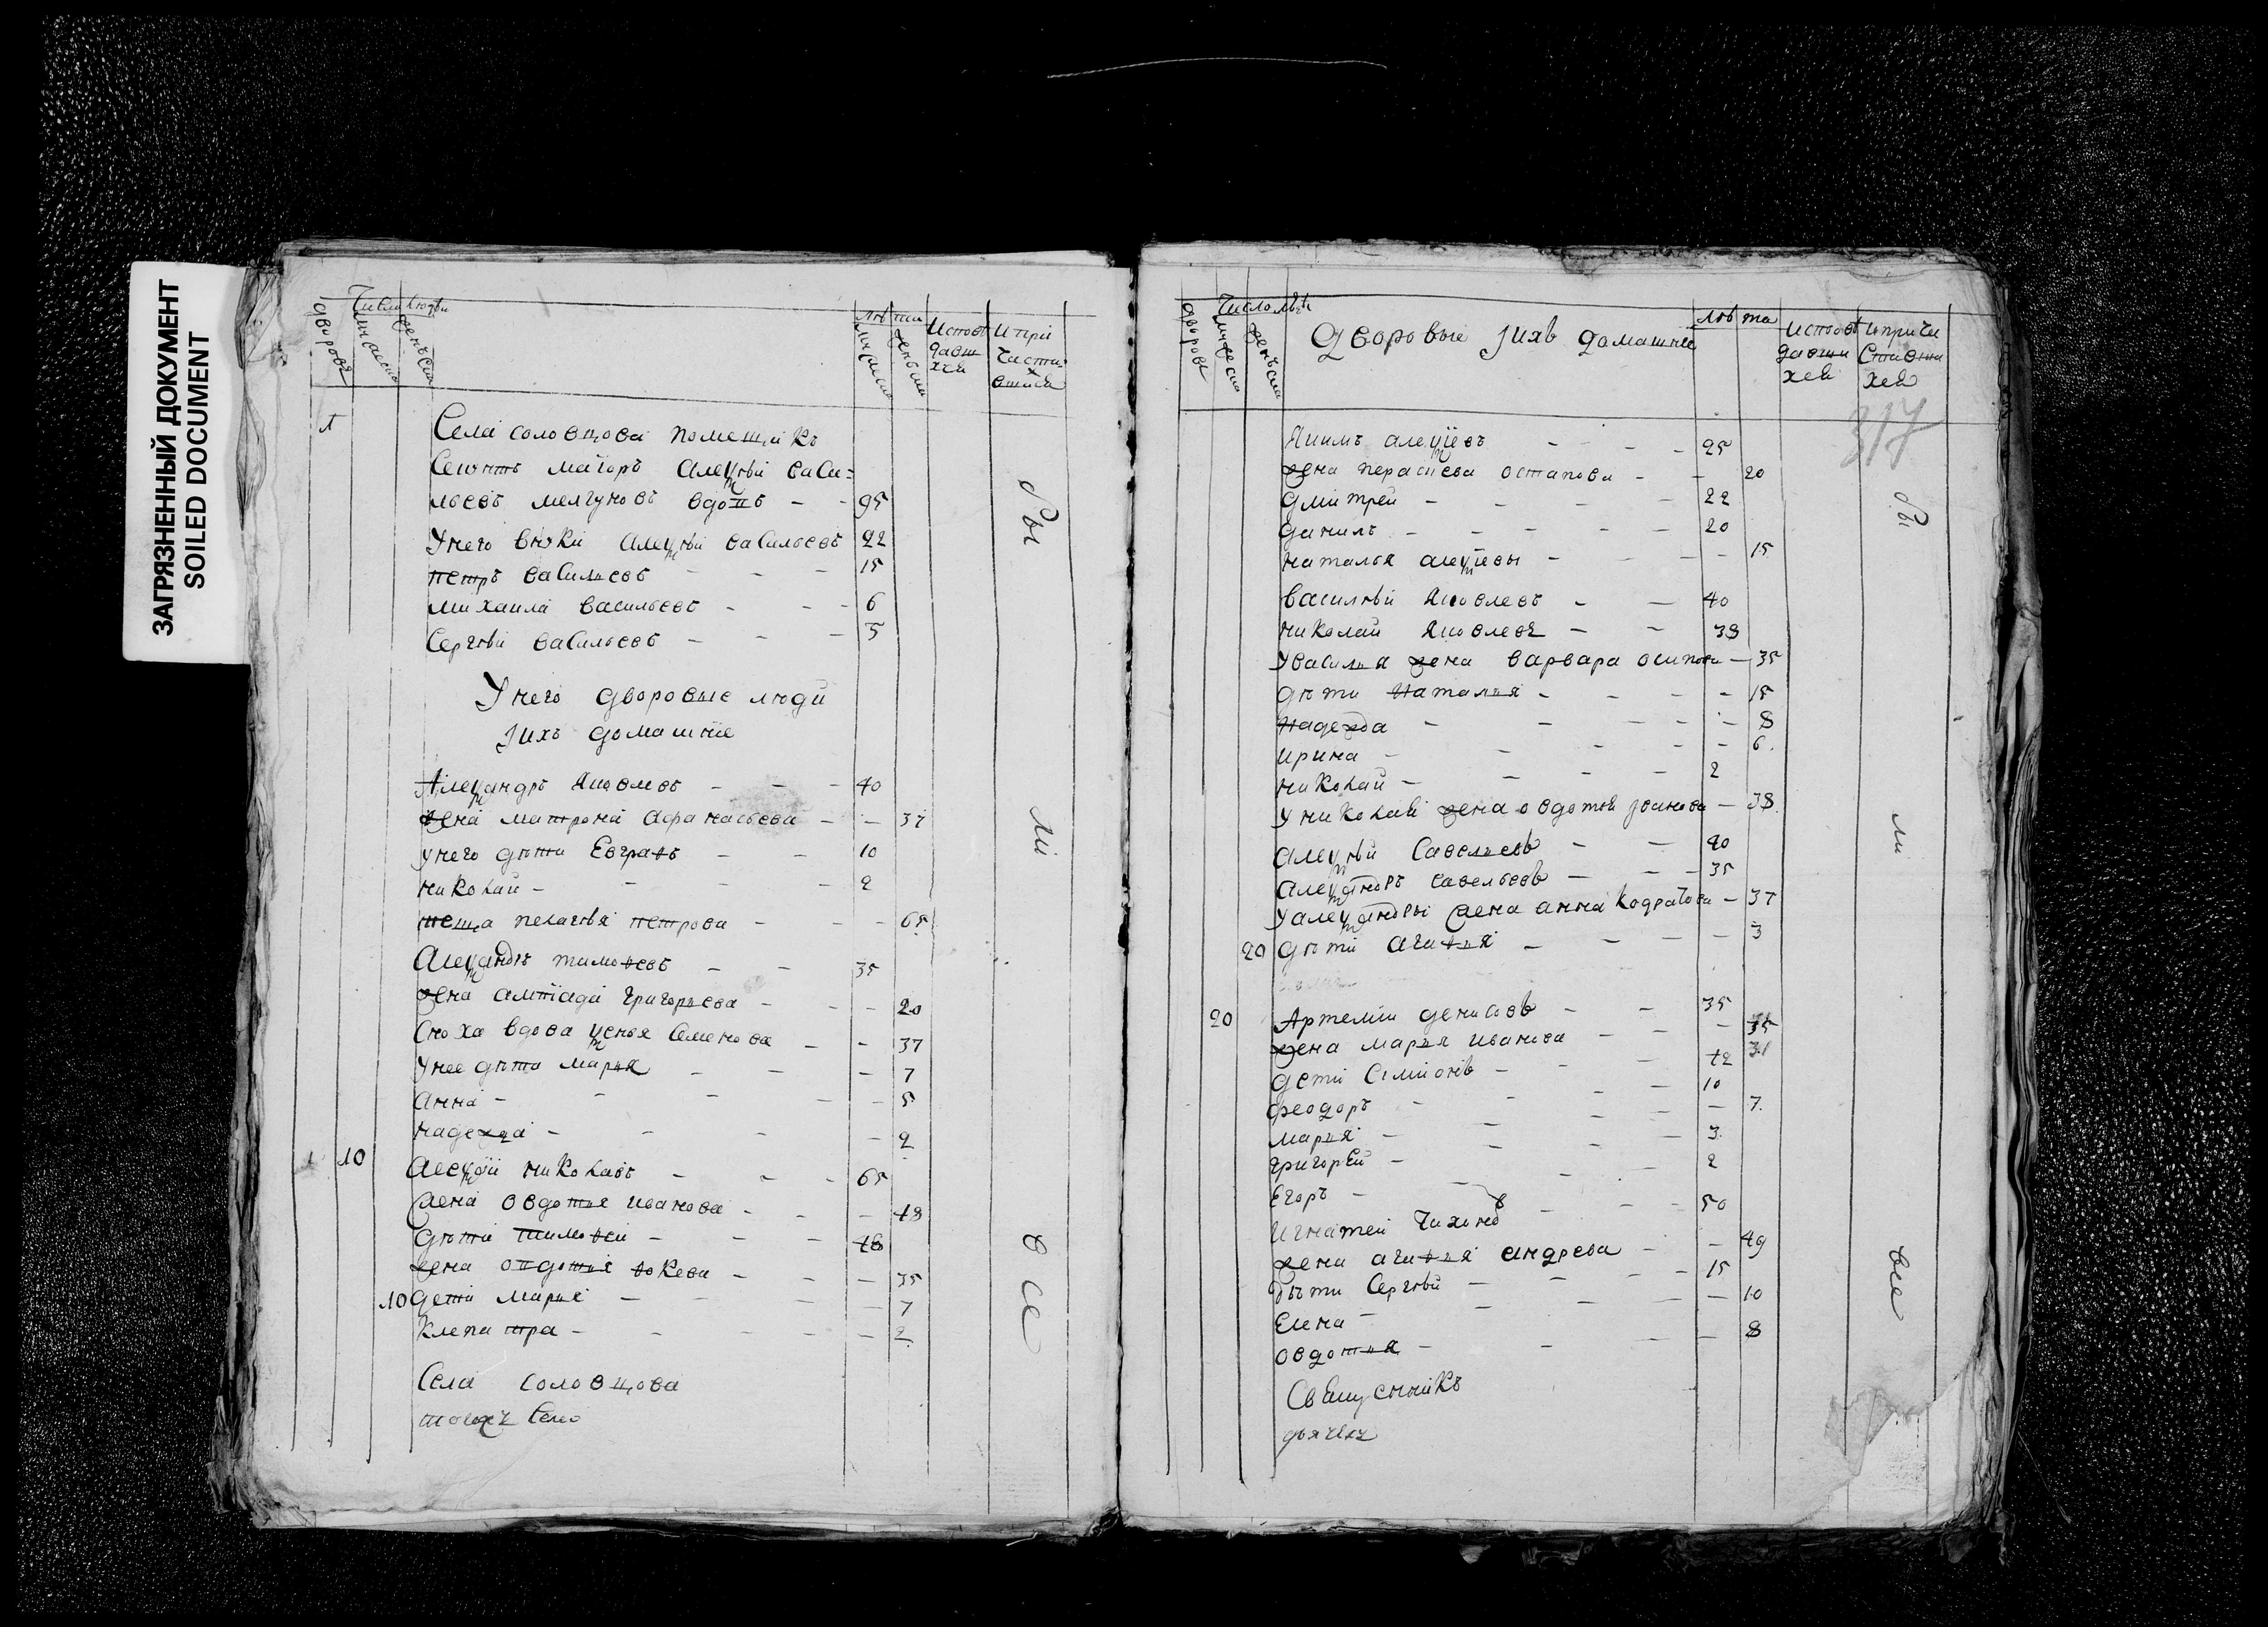 ЗАГРЯЗНЕННЫЙ ДОКУМЕНТ
SOILED DOCUMENT
Число людей
дворовъ
мужеска
женъска
лѣ та
мужеска
женъска
Исповѣ
давш
хся
И при
части
вшихся
1
Села соловцова помещикъ
Секунтъ маіоръ Алексѣй васи=
льевъ мелгуновъ вдовъ - - 95
У него внуки Алексѣй васильевъ 22
петръ васильевъ - - - 15
михаила васильевъ - - - 6
Сергѣй васильевъ - - - 5
У него дворовые люди
ɪихъ домашнїе
Александръ Яковлевъ - - - 40
жена матрона афанасьева - - 37
у него дѣти Евграѳъ - - 10
николай - - - 2
теща пелагѣя петрова - - - 65
Александръ тимоѳевъ - - 35
жена григорьева - - - 20
Сноха вдова ксенья Семенова - - 37
У нее дѣти марья - - - 7
анна - - - - - 5
надежда - - - - 2
1 10 Алексѣй николавъ - - - 65
жена овдотья иванова - - - 48
дѣти тимоѳей - - - 48
жена овдотья ѳокева - - - 35
10 дети марья - - - - 7
Клепатра - - - - - 2
Села соловцова
тогожъ села
ры
ли
все
Число людей
дворовъ
мужеска
женъска
Дворовые ɪихъ домашнїе
лѣ та
исповѣ
давши
хся
и причи
Стивши
хся
317
Якимъ алексїевъ - - - - 25
жена остапова - - 20
дмитрей - - - - 22
данилъ - - - - - 20
наталья алексїевы - - - 15
василѣй Яковлевъ - - 40
николай Яковлевъ - - 39
У василья жена варвара осипова - 35
дѣти Наталья - - - - 15
Надежда - - - - - - 8
ирина - - - - - 6.
николай - - - - 2
У николая жена овдотья ɪванова - 38
алексѣй Савельевъ - - 40
александръ савельевъ - - - 35
У александры жена анна кодратова - 37
20 дѣти агаѳья - - - - 3
20 Артемïи денисовъ - - 35
жена марья иванова - - - 31
дети Симионъ - - - 12
феодоръ - - - - 10
марья - - - - 7.
григорей - - - 3
Егоръ - - - 2
Игнатей тихоновъ - - - 50
жена агаѳья андреева - - 49
дѣти Сергѣй - - - - 15
Елена - - - - 10
овдотья - - - - 8
Священникъ
дьячекъ
ры
ли
все